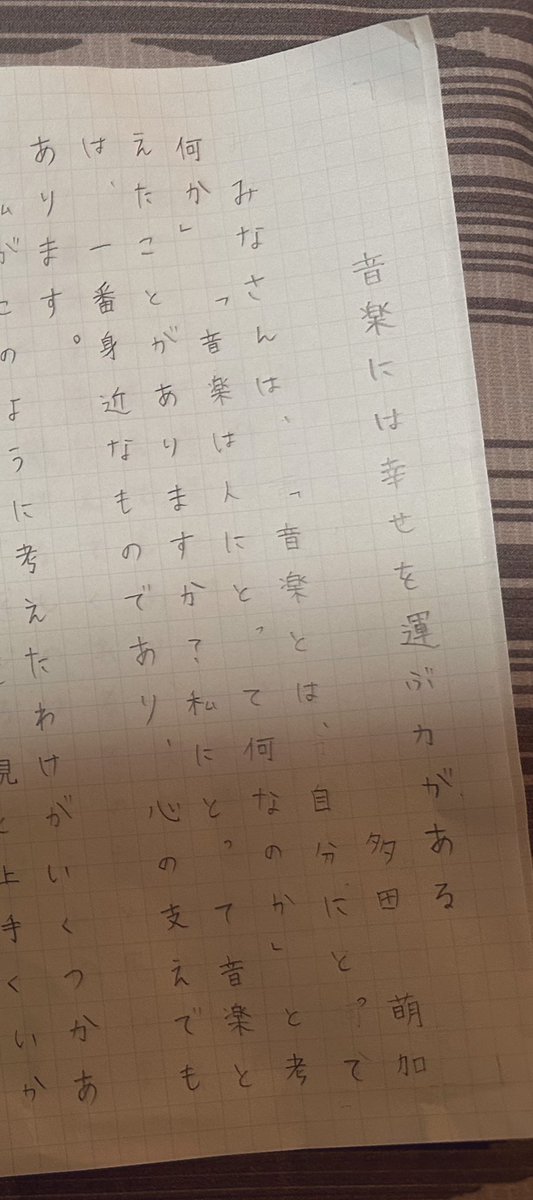 音楽には幸せを運ぶ力がある
多田 萌加
みなさんは、「音楽とは、自分にとって
何か」「音楽は人にとって何なのか」と考
えたことがありますか?私にとって音楽と
は、一番身近なものであり、心の支えでも
あります。
私がこのように考えたわけがいくつかあ
見と上手くいか